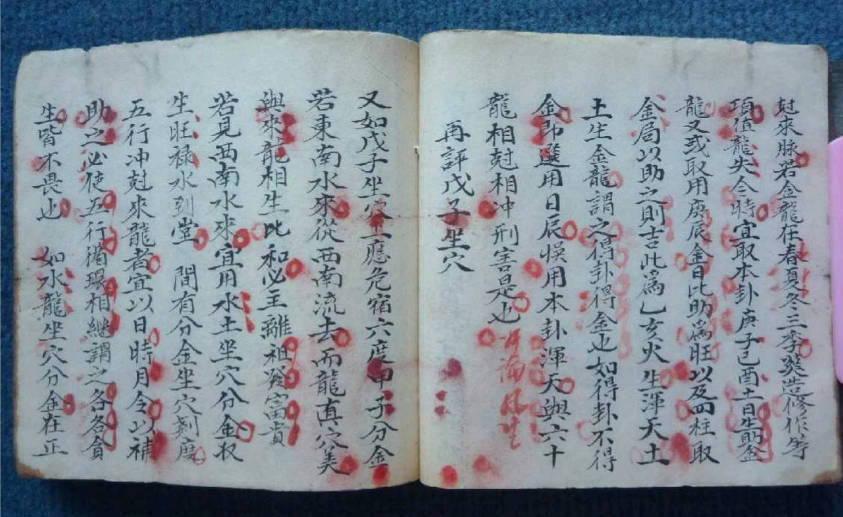 尅來脉若金龍在春夏冬三季葬造修作等
項值龍失令時宜取本卦庚子己酉土日生助金
龍又或取用庚辰金日比助為旺以及四柱取
金局以助之則吉此為乙亥火生渾天土
土生金龍謂之得卦得金也如得卦不得
金即選用日辰悮用本卦渾天與六十
龍相尅相冲刑害是也
再評戊子坐穴
又如戊子坐穴一應危宿六度甲子分金
若東南水來從西南流去而龍真穴美
與來龍相生比和必主離祖發富貴
若見西南水來宜用水土坐穴分金收
生旺祿水到堂 間有分金坐穴剋度
五行冲尅來龍者宜以日時月令以補
助之必使五行循環相繼謂之各各負
生皆不畏也 如水龍坐穴分金在正